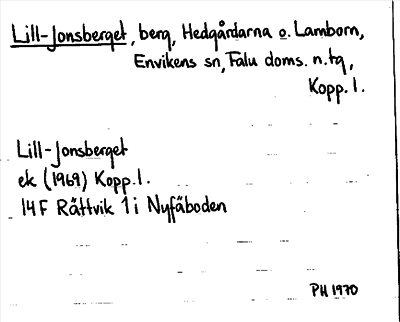 Lill-Jonsberget, berg, Hedgårdarna o. Lamborn,
Envikens sn, Falu doms. n. tg,
Kopp. l.
Lill-Jonsberget
ek (1969) Kopp. l.
14F Rättvik 1 i Nyfäboden
PH 1970